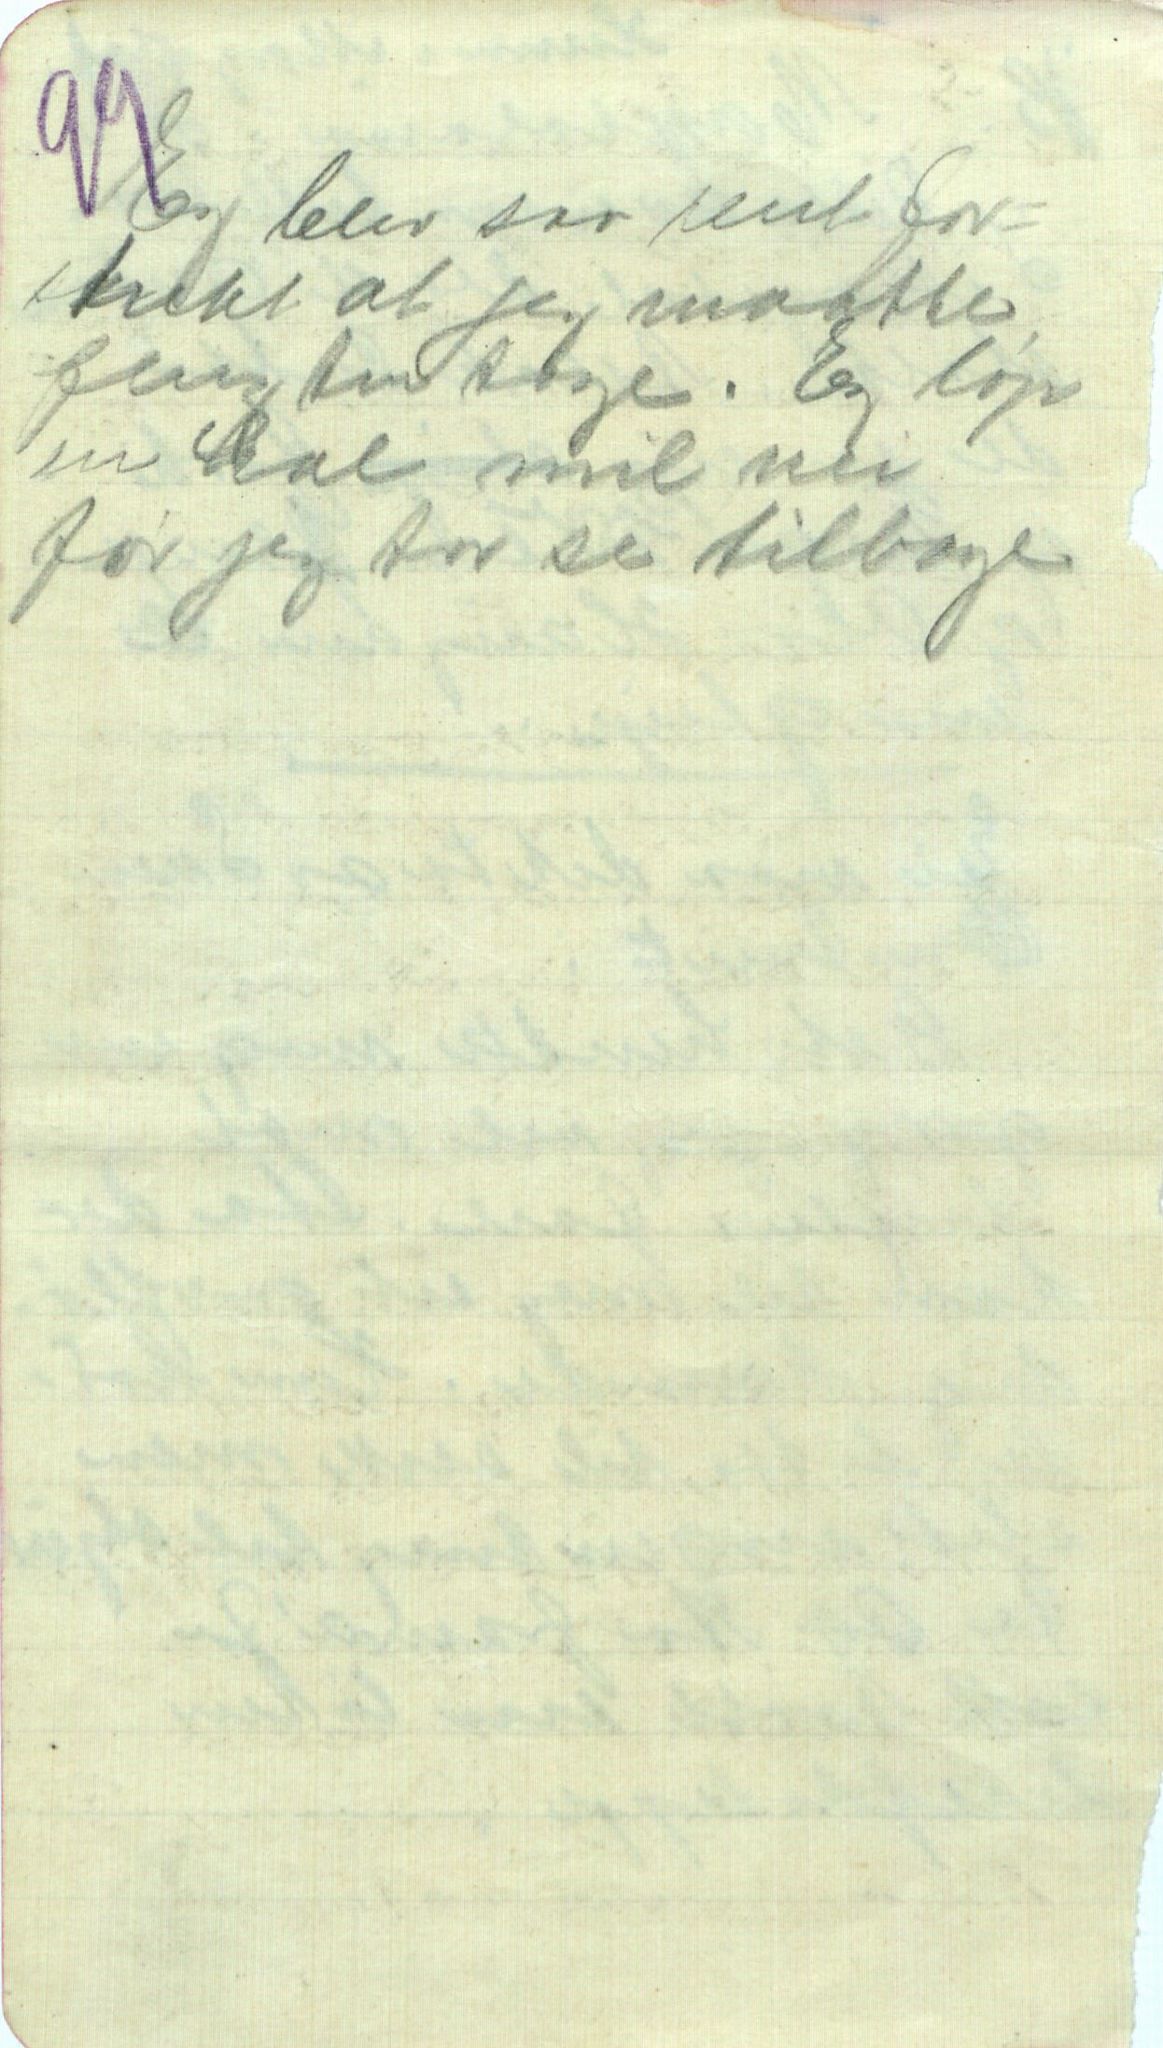 99
Eg blev saa rent for=
skrekt at jeg maatte
fly tilbage. Eg løp
en hal mil nei
før jeg tor se tilbage